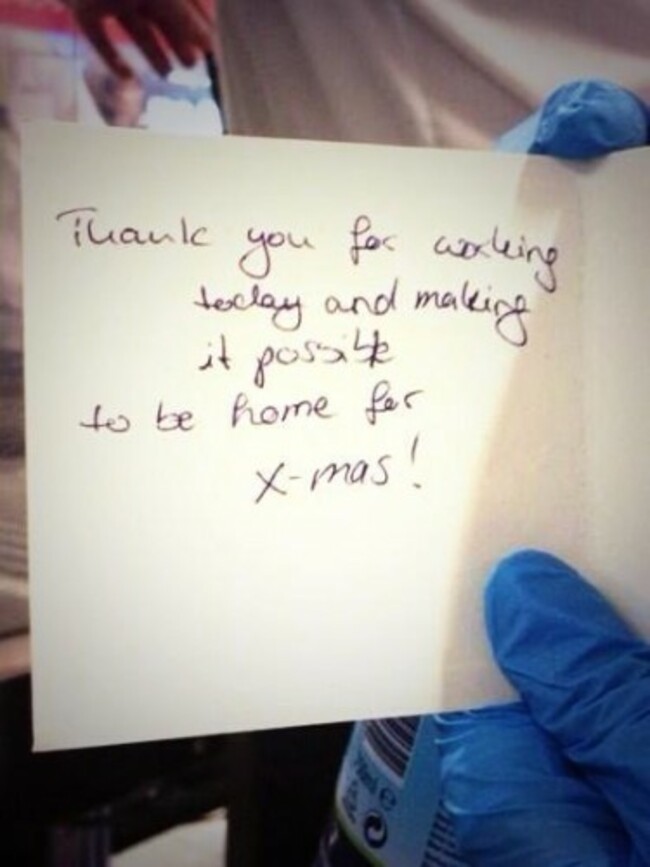 Thank you for working
today and making
it possible
to be home for
X-mas!